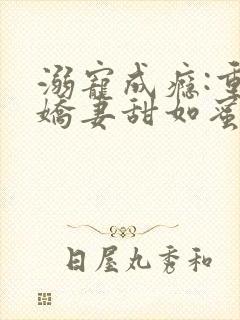 溺寵成癮:重
嬌妻甜如蜜
日屋丸秀和